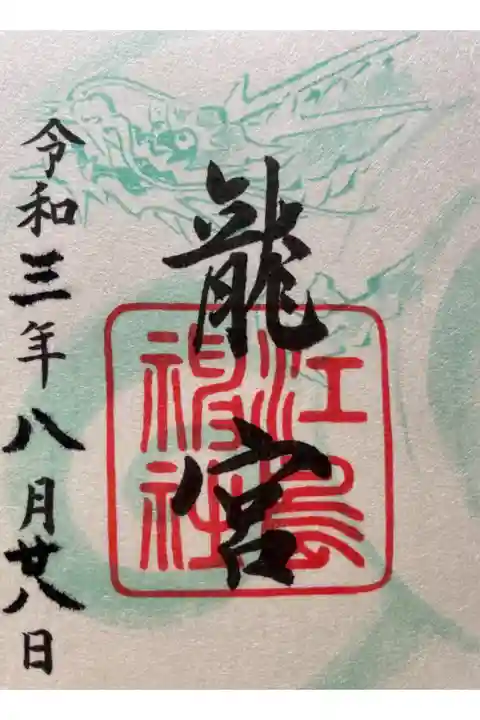 龍宮
江島神社
令和三年八月廿八日